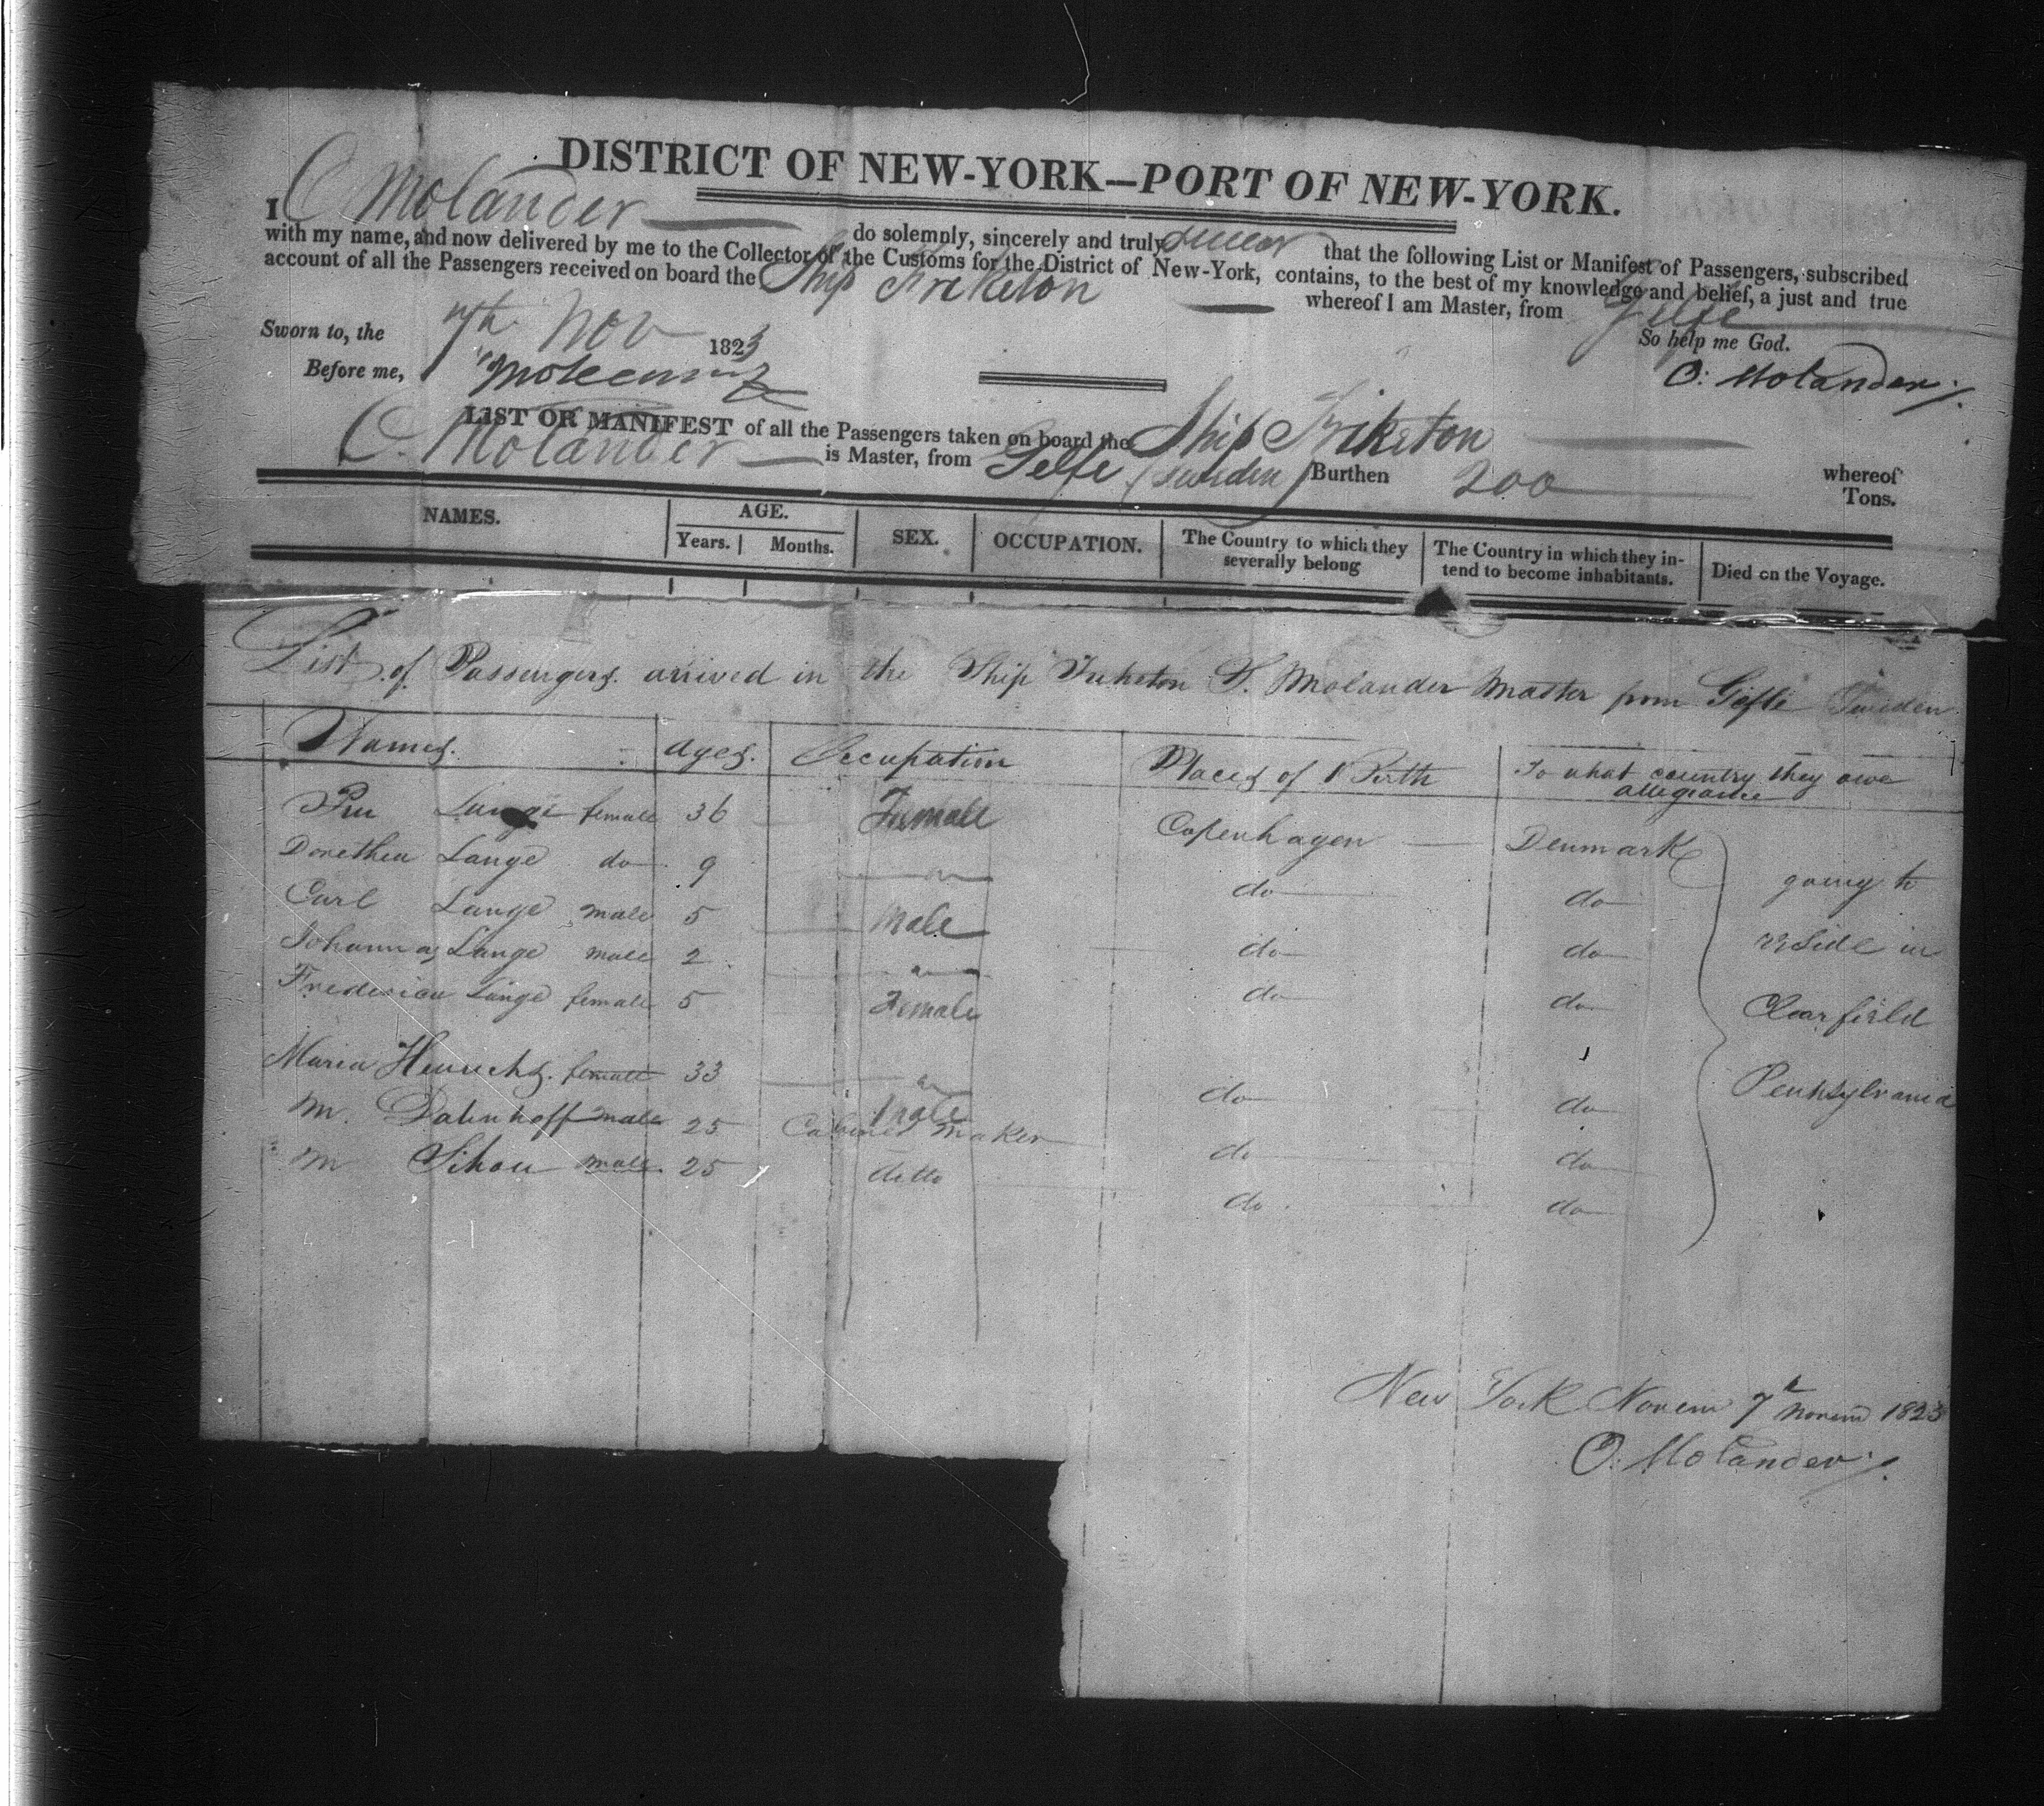 DISTRICT OF NEW-YORK—PORT OF NEW-YORK.
I O Molander do solemnly, sincerely and truly swear that the following List or Manifest of Passengers, subscribed
with my name, and now delivered by me to the Collector of the Customs for the District of New-York, contains, to the best of my knowledge and belief, a just and true
account of all the Passengers received on board the Ship whereof I am Master, from Gelfe
Sworn to, the 7th Nov 1823 So help me God.
Before me, O: Molander
LIST OR MANIFEST of all the Passengers taken on board the Ship Triketon whereof
O. Molander is Master, from Gelfe (Sweden) Burthen 200 Tons.
NAMES. AGE. Years. Months. SEX. OCCUPATION. The Country to which they severally belong The Country in which they intend to become inhabitants. Died on the Voyage.
List of Passengers arrived in the Ship Molander Master from Gefle Sweden
Names. Ages. Occupation Places of Birth To what country they owe
allegiance
Lange female 36 Female Copenhagen Denmark
Dorethea Lange do 9 do do going to
Carl Lange male 5 male do do reside in
Johanna Lange male 2 do do Clearfield
Frederica Lange female 5 Female
Maria female 33 do do Pennsylvania
M. Dalenhoff male 25 male Cabinet maker do do
M male 25 ditto do do
New York Novem 7th Novem 1823
O: Molander